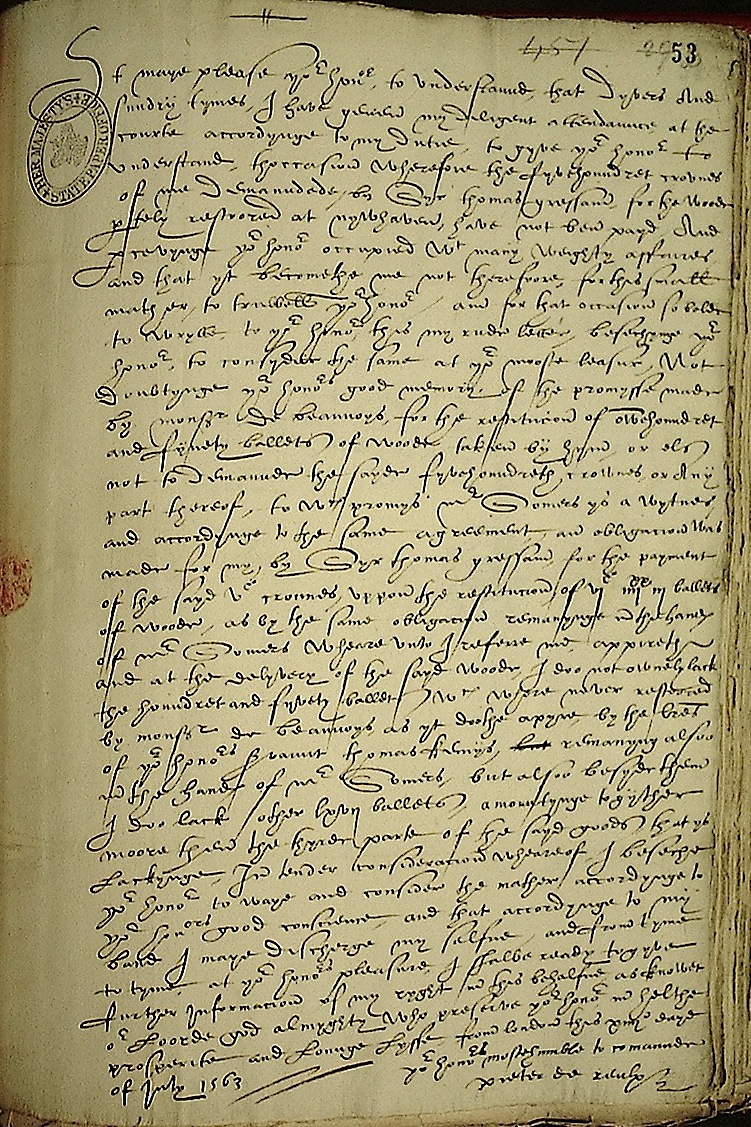 454 53
It maye please yor honor, to understaund, that Dyvers And
sundry tymes, I have geven my deligent attendaunce at the
courte accordynge to my Dutie, to gyve yor honor to
understand, thoccasion wherefore the fyvehoundret crownes
of me Demaundede, by Syr thomas gressam, for the woode
ptely restrored at nywhaven, have not ben payd, And
pcevynge yor honor occupied wt many weighty affaires
and that yt becomethe me not therefore, for this small
mather, to trubell yor honor, and for that occasion so bolde
to wrytte to yor honor, this my rude letter, besechynge yor
honor, to consyder the same at yor mooste leasure, Not
Doubtynge yor honors good memory of the promysse made
by monssr De beauvoys, for the restitucion of owehoundret
and fyvety ballets of woode taken by hym, or els
not to Demaunde the sayde fyvehoundreth crownes, or Any
part thereof, to wch promys mr Somers ys a wytnes
and accordynge to the same agreement, an obligacion was
made for my, by Syr thomas gressam, for the payment
of the sayd vc crownes, uppon the restitucion of vjc iiijxx iij ballets
of woode, as by the same obligacion remanynge in the handes
of mr Somers wheare unto I referre me, apperethe
and at the delyvery of the sayd woode, I doo not ownely lack
the houndret and fyvety ballets, wch were never restored
by monssr de beauvoys as yt dothe apere by the lres
of yor honors servaunt thomas kemys, remanyng alsoo
in the handes of mr Somers, but alsoo besyde them
I doo lack other lxvij ballets, amountynge togyther
moore then the thyrde parte of the sayd goods that ys
Lackynge, In tender consideracion wheareof I beseche
yor honor to waye and consider the mather, accordynge to
yor honors good conscience, and that accordynge to my
band I maye Discharge my selfve, and from tyme
to tyme, at yor honors pleasure, I shalbe ready to gyve
further Informacion of my ryght in this behalfve, as knowet
or Loorde god almyghty who preserve yor honor in helthe
prosperite and Lounge Lyffe from London this xiiijo daye
of July 1563 yor honors mosthumble to comaunde
pieter de
HER MAJESTY'S STATE PAPER OFFICE